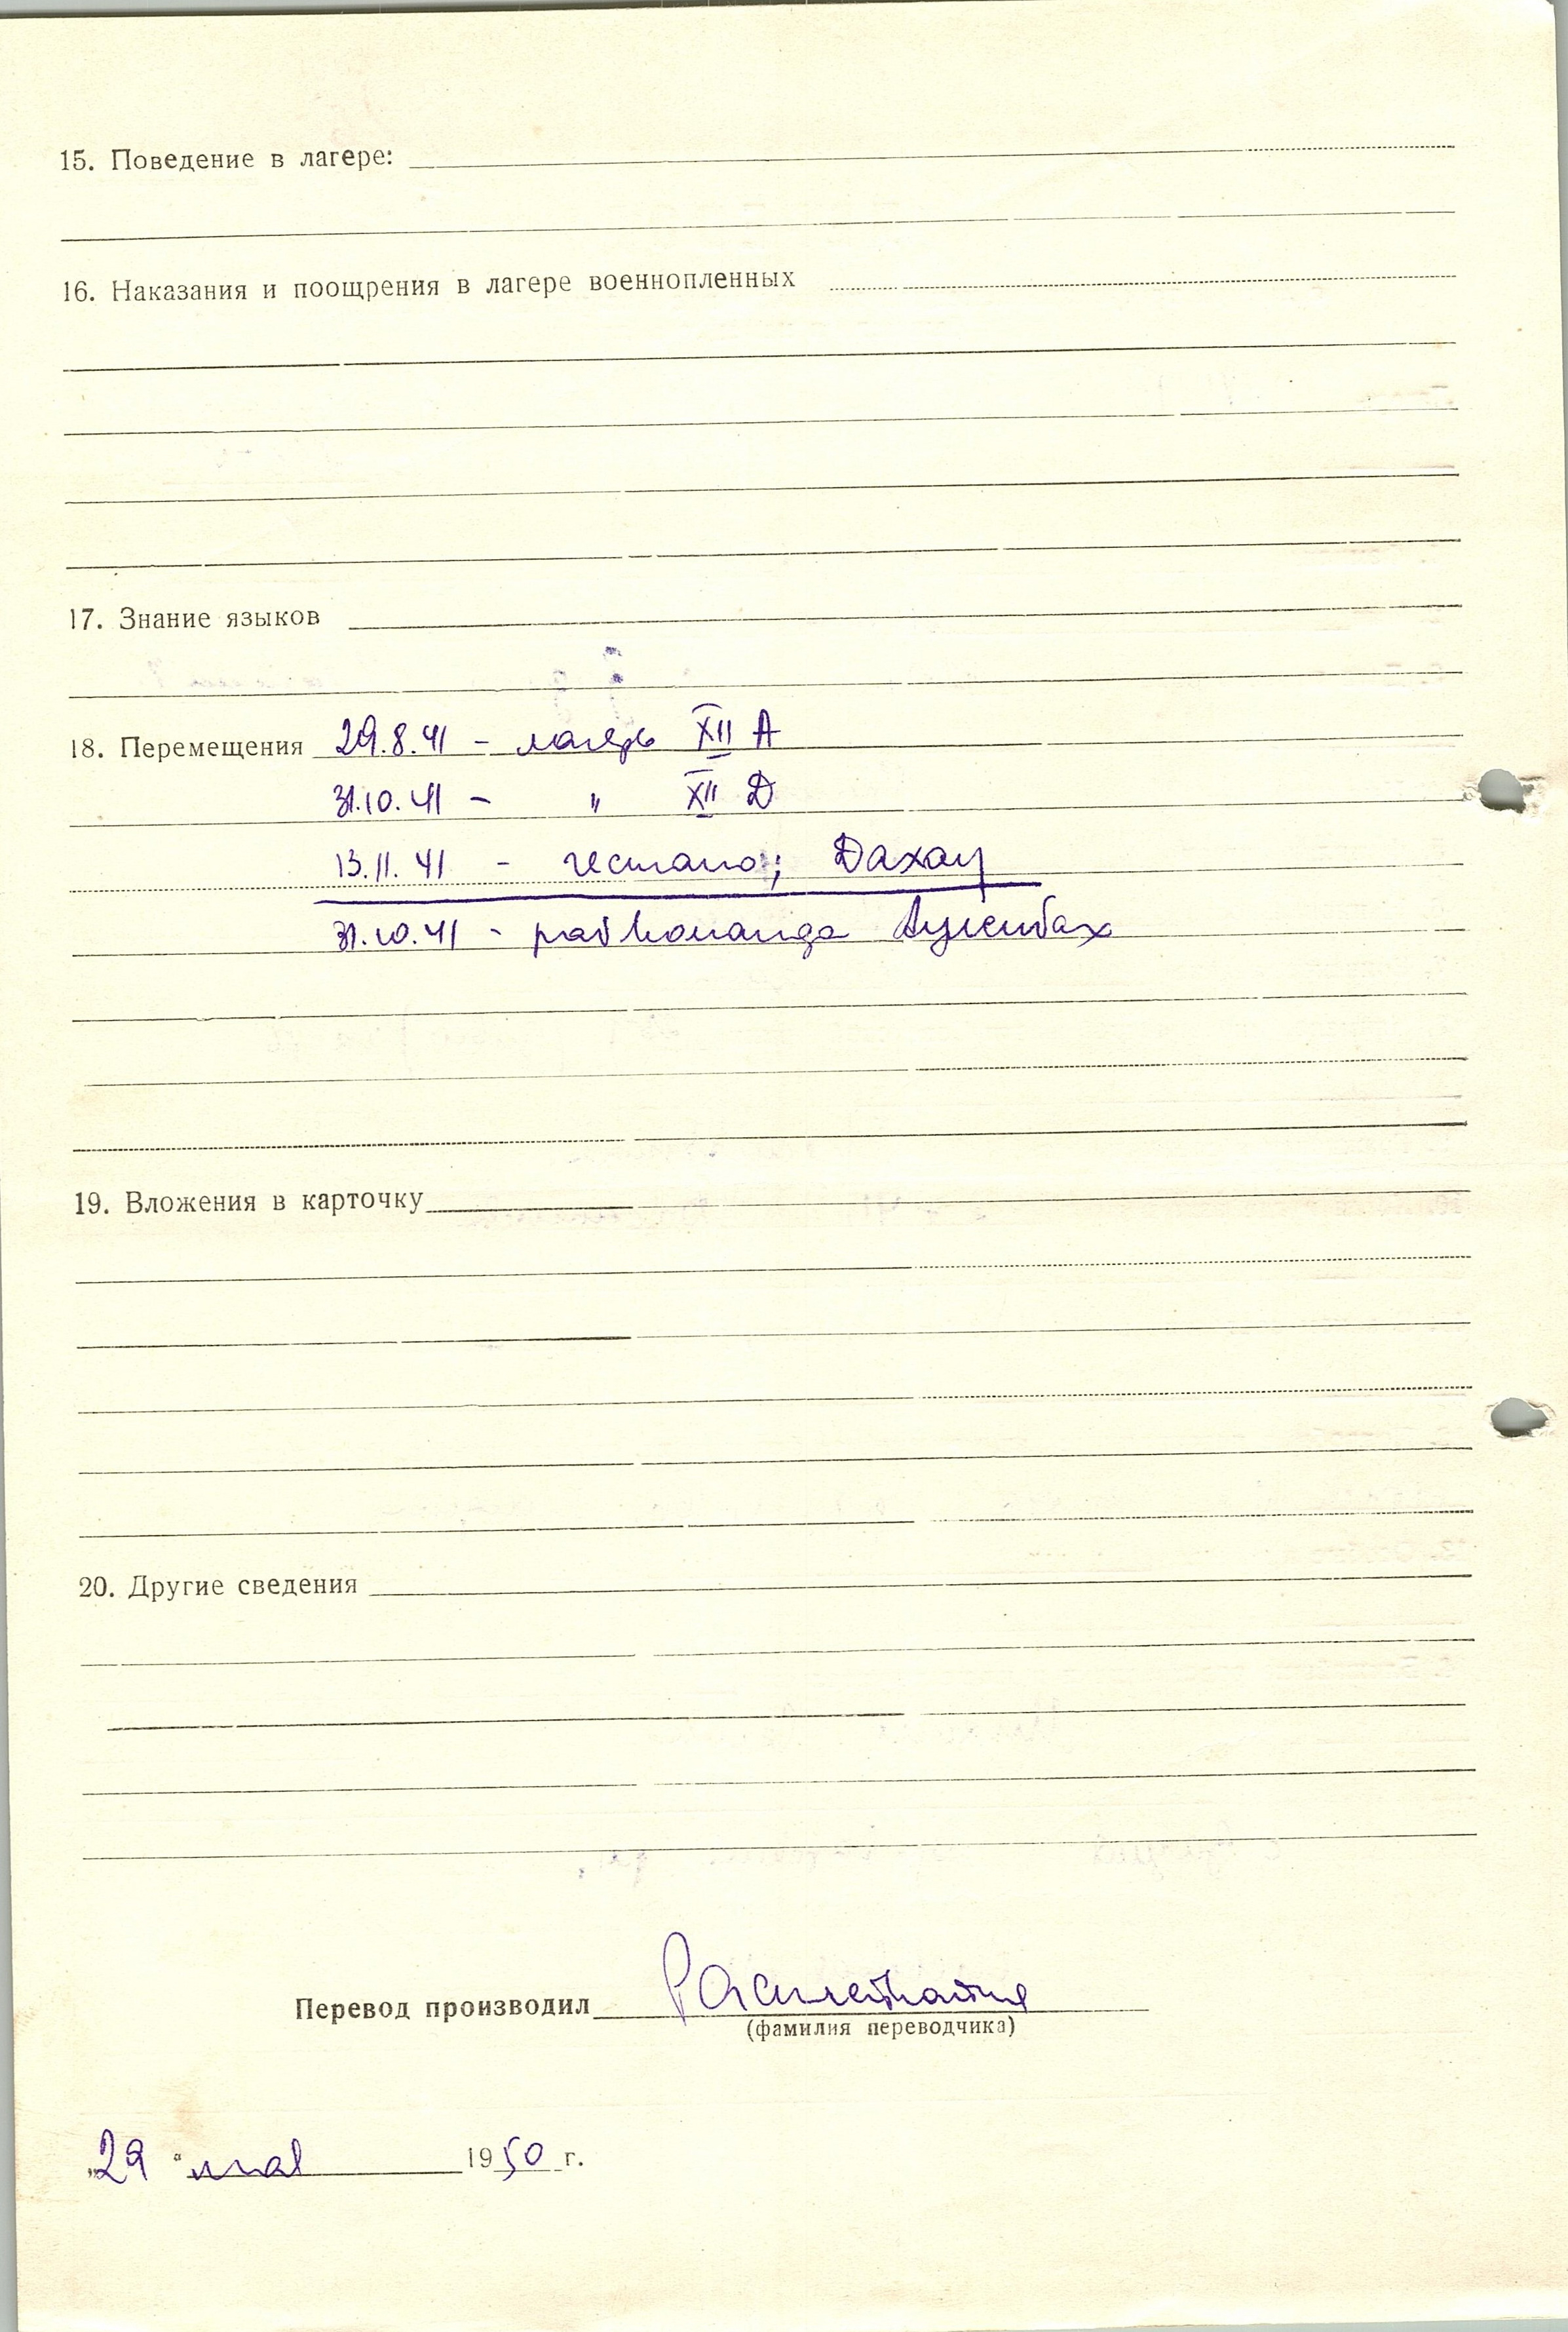 15. Поведение в лагере:
16. Наказания и поощрения в лагере военнопленных
17. Знание языков
18. Перемещения 29.8.41 - лагерь XII А
31.10.41 - " XII Д
13.11.41 - гестапо; Дахау
31.10.41 - рабкоманда
19. Вложения в карточку
20. Другие сведения
Перевод производил
(фамилия переводчика)
„29“ мая 1950 г.